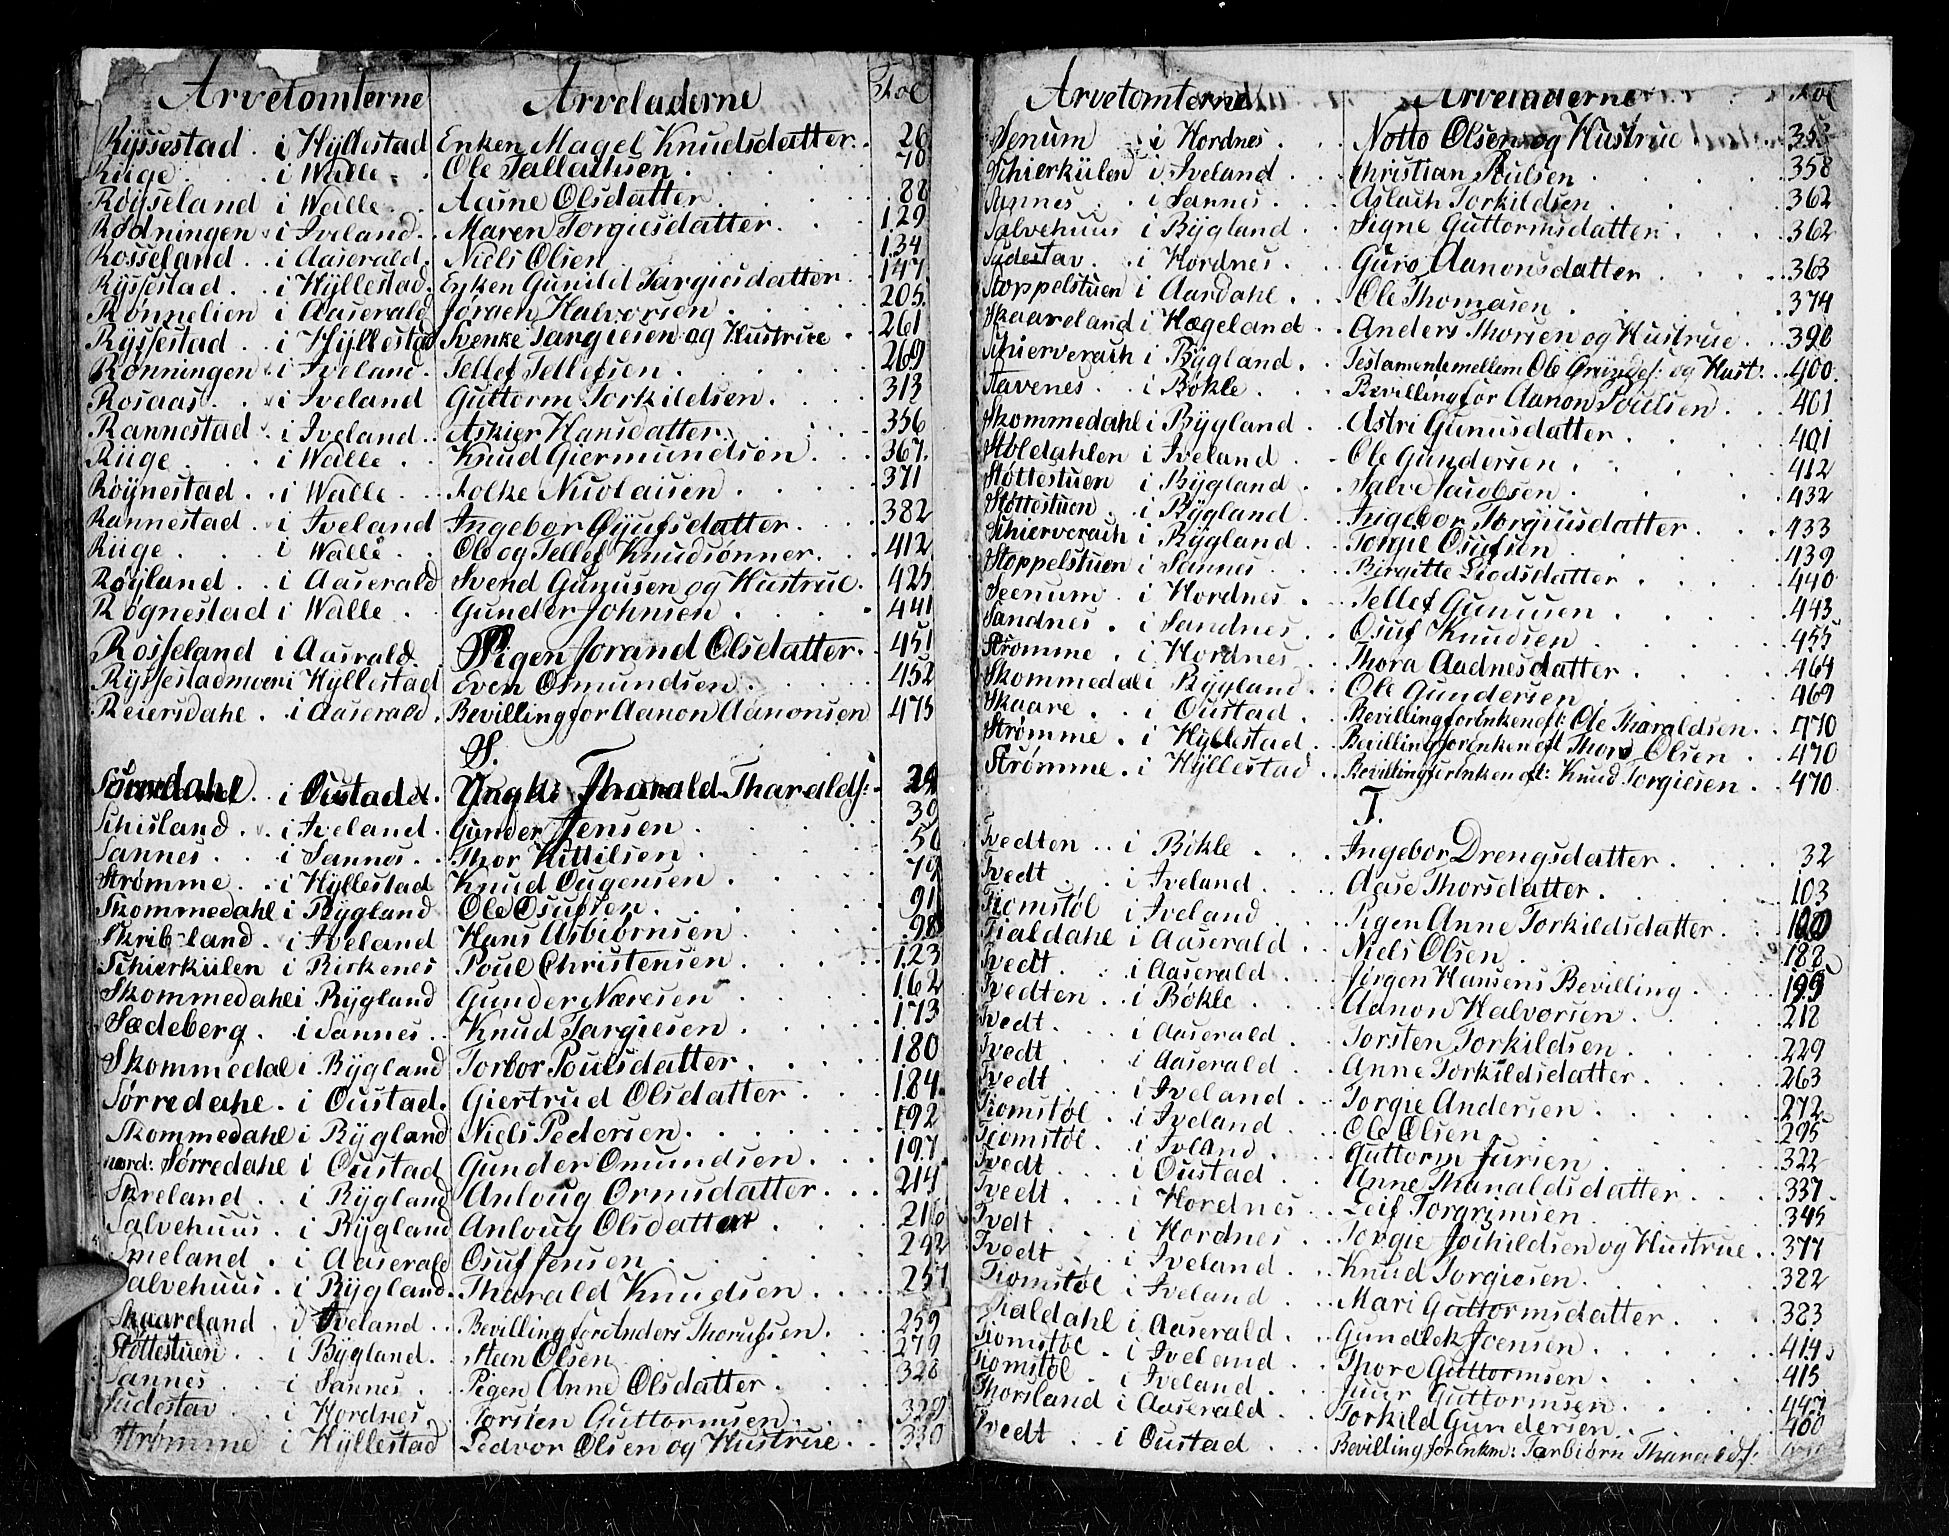 Arvetomterne Arveladerne Fol
Ryssestad i Hÿllestad Enken Magel Knudsdatter 26
Riige i Walle Ole Tallachsen
Røÿseland i Walle Aasne Olsdatter 88
Rødningen i Iveland Maren Torgiesdatter 129
Rosseland i Aaserald Niels Olsen 134
Ryssestad i Hÿllestad Enken Gunild Targiesdatter 147
Rønnelien i Aaserald Jørgen Halvorsen 205
Rÿssestad i Hÿllestad Svenke Targiesen og Hustrue 261
Rønningen i Iveland Tellef Tellefsen 269
Rosaas i Iveland Guttorm Torkildsen 313
Rannestad i Iveland Askier Hansdatter 356
Riige i Walle Knud Giermundsen 367
Røÿnestad i Walle Folke Nicolaisen 371
Rannestad i Iveland Ingebor Øÿufsdatter 382
Riige i Walle Ole og Tellef Knudsønner 412
Røÿland i Aaserald Svend Gunusen og Hustrue 425
Røgnestad i Walle Gunder Johnsen 441
Rosseland i Aaserald Pigen Jorand Olsdatter 451
Ryssestadmoen i Hÿllestad Even Osmundsen 452
Reiersdahl i Aaserald Bevilling for Aanon Aanonsen 475
S.
i Oustad Ungk: Tharald Tharaldss: 24
Schisland i Iveland Gunder Jensen 39
Sannes i Sannes Thor Kittilsen 50
Strømme i Hÿllestad Knud Ougensen 79
Skommedahl i Bÿgland Ole Osufsen 91
Skribland i Iveland Hans Asbiørnsen 98
Schierkülen i Birkenes Poul Christensen 123
Skommedahl i Bÿgland Gunder Næresen 162
Sædeberg i Sannes Knud Targiesen 173
Skommedal i Bÿgland Torbor Poulsdatter 180
Sørredahl i Oustad Giertrud Olsdatter 184
Skommedahl i Bÿgland Niels Pedersen 192
nord: Sørredahl i Oustad Gunder Omundsen 197
Skreland i Bÿgland Anloug Ormsdatter 214
Salvehuus i Bÿgland Anloug Olsdatter 216
Smeland i Aaserald Osuf Jensen 242
Salvehuus i Bÿgland Tharald Knudsen 257
Skaareland i Iveland Bevilling for Anders Thorufsen 259
Støttestuen i Bÿgland Steen Olsen 279
Sannes i Sannes Pigen Anne Olsdatter 328
Sudestav i Hordnes Torsten Guttormsen 329
Strømme i Hÿllestad Sedvor Olsen og Hustrue 330
Arvetomterne Arveladerne Fol
Senum i Hordnes Notto Olsen og Hustrue
Schierkülen i Iveland Christian Poulsen 358
Sannes i Sannes Aslach Torkildsen 362
Salvehuus i Bÿgland Signe Guttormsdatter 362
Sudestav i Hordnes Guro Aanonsdatter 363
Stoppelstuen i Aardahl Ole Thomasen 374
Skaareland i Hægeland Anders Thorsen og Hustrue 390
Schierverach i Bÿgland Testamente mellem Ole og Hust: 400
Stavenes i Bøkle Bevilling for Aanon Poulsen 401
Skommedahl i Bÿgland Astri Gunusdatter 401
Støledahlen i Iveland Ole Gundersen 412
Støttestuen i Bÿgland Salve Jacobsen 432
Støttestuen i Bÿgland Ingebor Torgiusdatter 433
Schierverach i Bÿgland Torgie Osufsen 439
Stoppelstuen i Sannes Birgitte Siodsdatter 440
Seenum i Hordnes Tellef Gunusen 443
Sandnes i Sandnes Osuf Knudsen 455
Strømme i Hordnes Thora Aadnesdatter 464
Skommedal i Bÿgland Ole Gundersen 469
Skaare i Oustad Bevilling for Enken eft: Ole Tharaldsen 470
Strømme i Hÿllestad Bevilling for Enken eft Thore Olsen 470
Strømme i Hÿllestad Bevilling for Enken eft: Knud Torgiesen 470
T.
Tvedten i Bøkle Ingebor Drengsdatter 32
Tvedt i Iveland Aase Thorsdatter 103
Tiomstøl i Iveland Pigen Anne Torkildsdatter
Tialdahl i Aaserald Niels Olsen 188
Tvedt i Aaserald Jørgen Hansens Bevilling 195
Tvedten i Bøkle Aanon Halvorsen 218
Tvedt i Aaserald Torsten Torkildsen 229
Tvedt i Aaserald Anne Torkildsdatter 263
Tvedt i Iveland Torgie Andersen 272
Tiomstøl i Iveland Ole Olsen 295
Tiomstøl i Ivland Guttorm Jursen 322
Tvedt i Oustad Anne Tharaldsdatter 337
Tvedt i Hordnes Leif Torgrimsen 345
Tvedt i Hordnes Torgie Jochildsen og Hustrue 377
Tvedt i Iveland Knud Torgiesen 382
Tiomstøl i Iveland Mari Guttormsdatter 383
Tialdahl i Aaserald Gundlek Joensen 414
Tiomstøl i Iveland Thore Guttormsen 415
Tiomstøl i Iveland Juur Guttormsen
Thorsland i Aaserald Torkild Gundersen 460
Tvedt i Oustad Bevilling for Enkm: Tarbiørn Tharaldss: